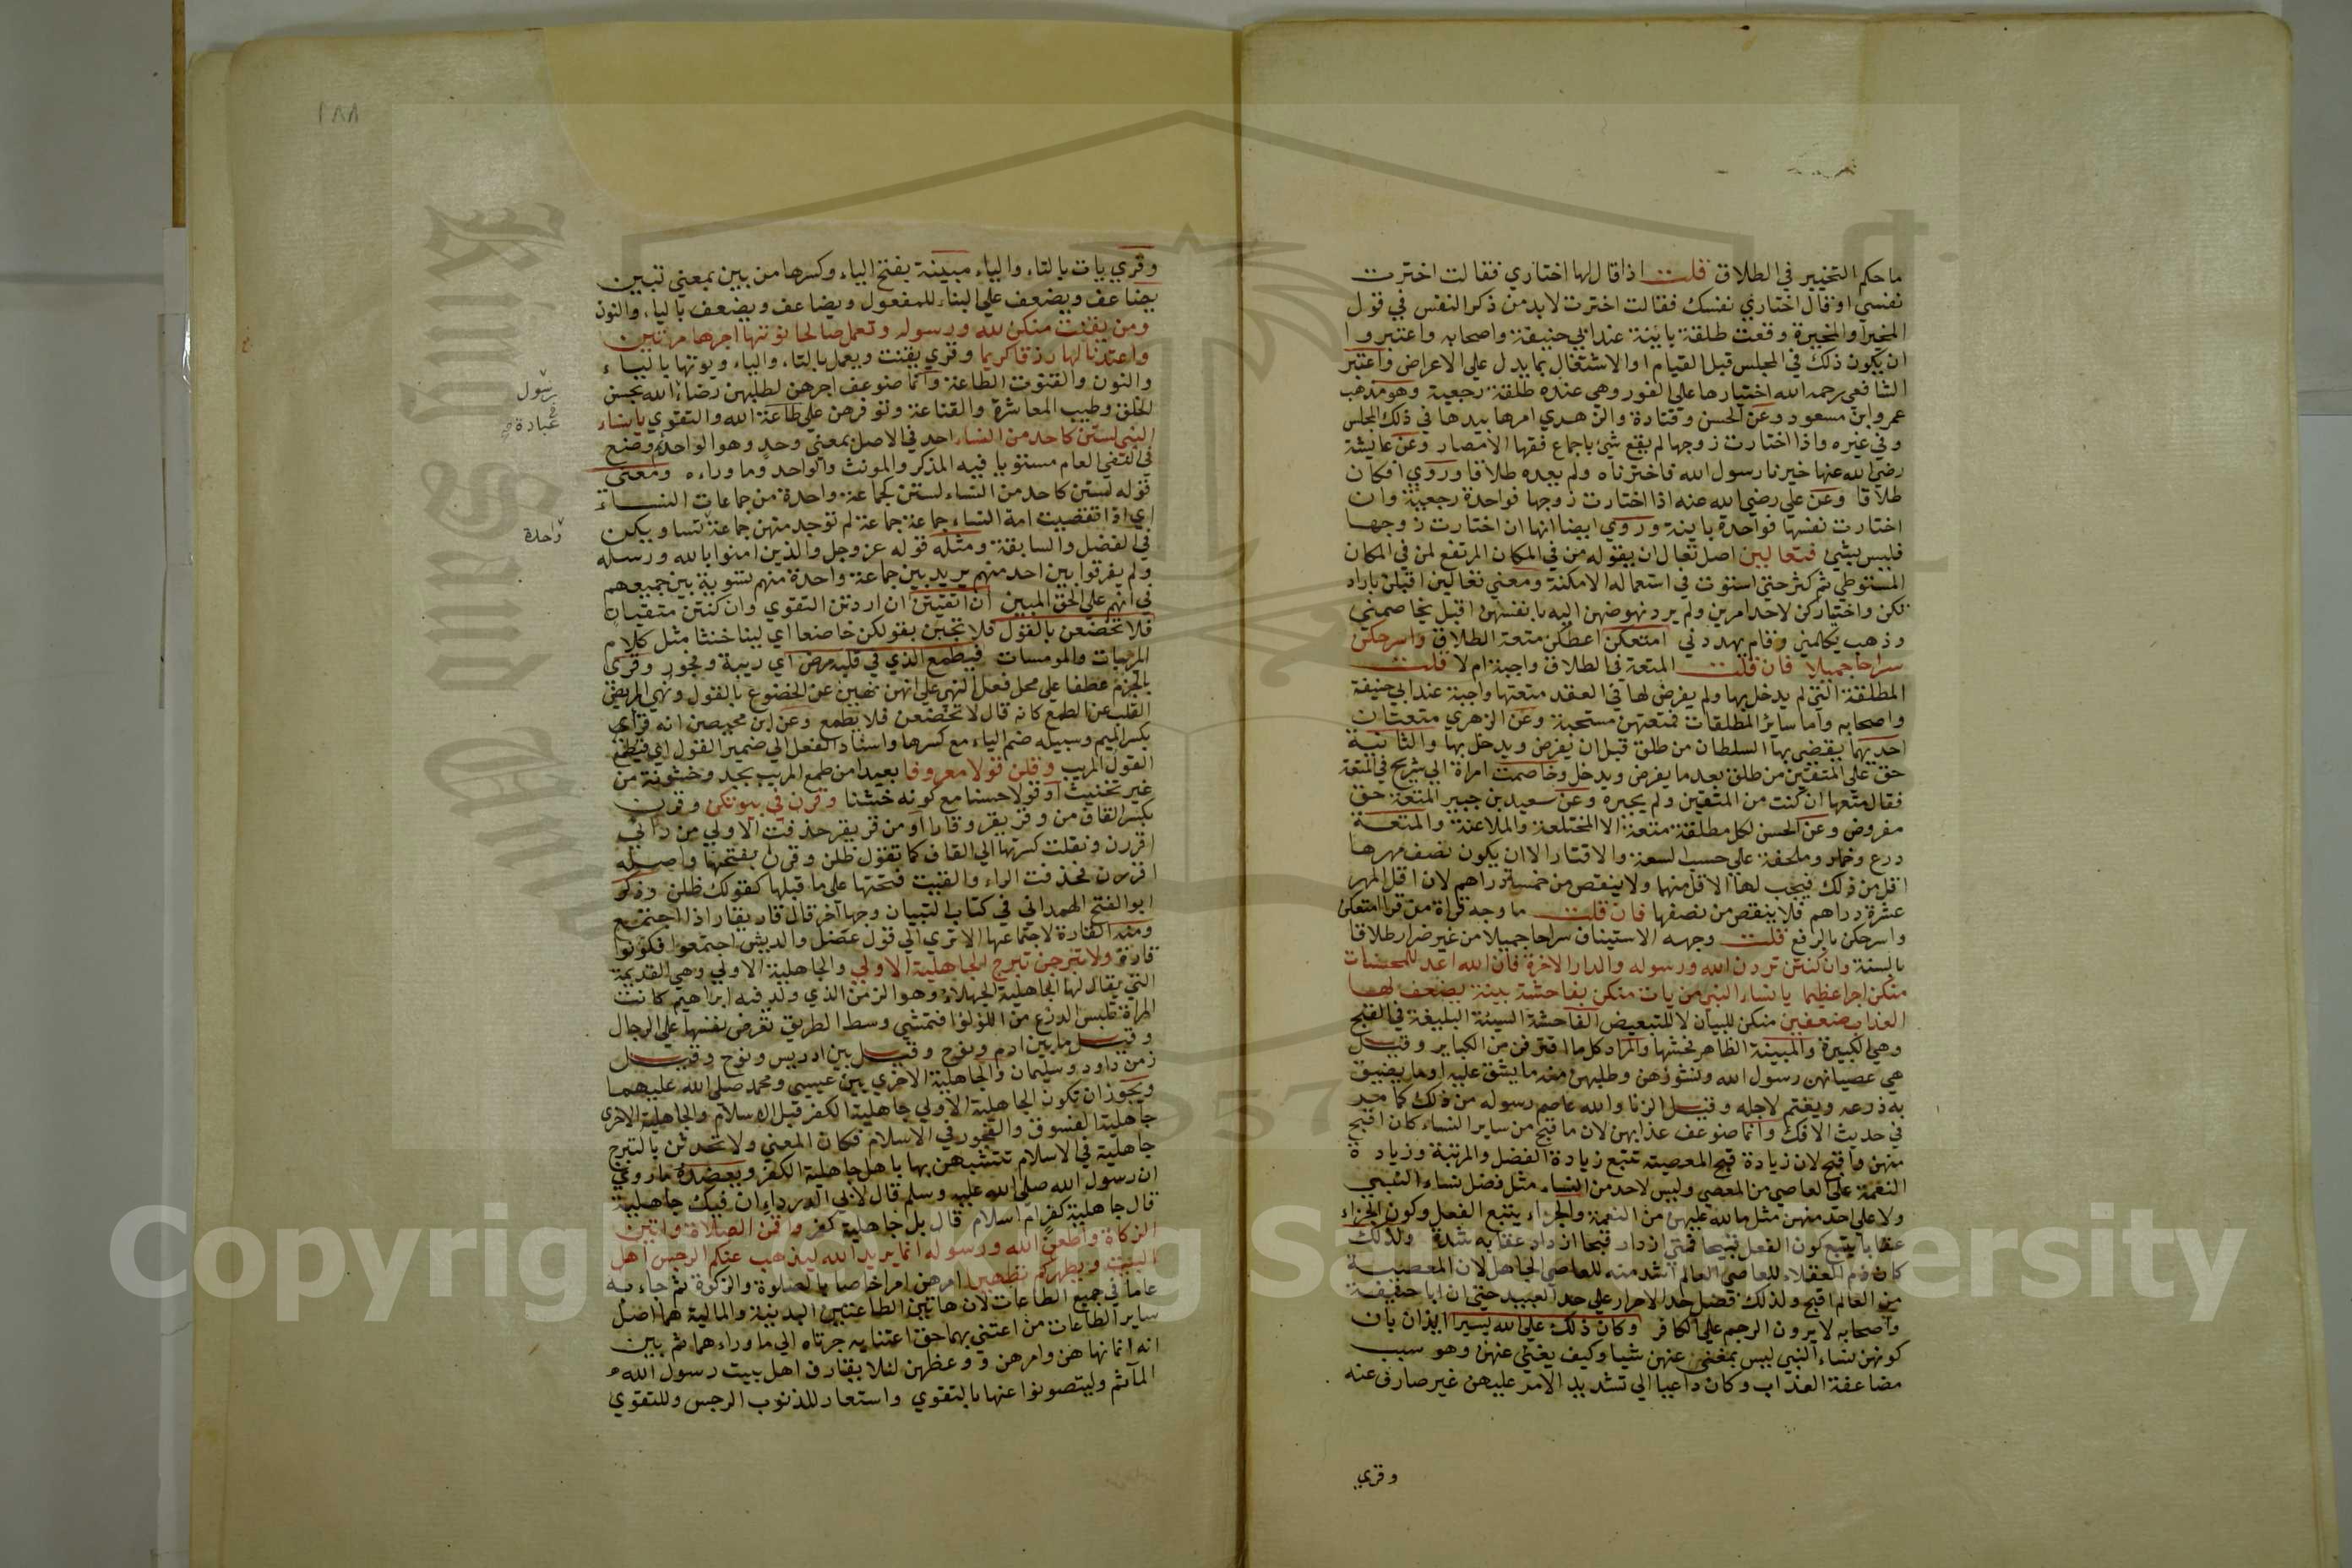 ما حكم التخيير في الطلاق قلت اذا قال لها اختاري فقالت اخترت
نفسي او قال اختاري نفسك فقالت اخترت لابد من ذكر النفس في قول
المخير او المخيرة وقعت طلقة باينة عند ابي حنيفة واصحابه واعتبروا
ان يكون ذلك في المجلس قبل القيام او الاشتغال بما يدل علي الاعراض واعتبر
الشافعي رحمه الله اختيارها علي الفور وهي عنده طلقة رجعية وهو مذهب
عمر وابن مسعود وعن الحسن وقتادة والزهدي امرها بيدها في ذلك المجلس
وفي غيره واذا اختارت زوجها لم يقع شئ باجماع فقها الامصار وعن عايشة
رضي الله عنها خيرنا رسول الله فاخترناه ولم يعده طلاقا وروي افكان
طلاقا وعن علي رضي الله عنه اذا اختارت زوجها فواحدة رجعية وان
اختارت نفسها فواحدة باينة وروي ايضا انها ان اختارت زوجها
فليس بشئ فتعالين اصل تعال ان يقوله من في المكان المرتفع لمن في المكان
المستوطي ثم كثر حتي استوت في استعماله الامكنة ومعني تعالين اقبلن باراد
تكن واختياركن لاحد امرين ولم يرد نهوضهن اليه بانفسهن اقبل يخاصمني
وذهب يكالمني وقام يهددني امتعكن اعطكن متعة الطلاق واسرحكن
سراحا جميلا فان قلت المتعة في الطلاق واجبة ام لا قلت
المطلقة التي لم يدخل بها ولم يفرض لها في العقد متعتها واجبة عند ابي حنيفة
واصحابه واما ساير المطلقات فمتعتهن مستحبة وعن الزهري متعتان
احديهما يقضي بها السلطان من طلق قبل ان يفرض ويدخل بها والثانية
حق علي المتقين من طلق بعد ما يفرض ويدخل وخاصمت امراة الي شريح في المتعة
فقال متعها ان كنت من المتقين ولم يجبره وعن سعيد بن جبير المتعة حق
مفروض وعن الحسن لكل مطلقة متعة الا المختلعة والملاعنة والمتعة
درع وخمار وملحفة علي حسب السعة والاقتار الا ان يكون نصف مهرها
اقل من ذلك فيجب لها الاقل منهما ولا ينقص من خمسة دراهم لان اقل المهر
عشرة دراهم فلا ينقص من نصفها فان قلت ما وجه قراة من قرا امتعكن
واسرحكن بالرفع قلت وجهه الاستيناف سراحا جميلا من غير ضرار طلاقا
بالسنة وان كنتن تردن الله ورسوله والدار الاخرة فان الله اعد للمحسنات
منكن اجرا عظيما يا نساء النبي من يات منكن بفاحشة بينة يضعف لها
العذاب ضعفين منكن للبيان لا للتبعيض الفاحشة السيئة البليغة في القبح
وهي الكبيرة والمبينة الظاهر فحشها والمراد كل ما اقترفن من الكباير وقيل
هي عصيانهن رسول الله ونشوزهن وطلبهن منه ما يشق عليه او ما يضيق
به ذرعه ويغتم لاجله وقيل الزنا والله عاصم رسوله من ذلك كما مر
في حديث الافك وانما ضوعف عذابهن لان ما قبح من ساير النساء كان اقبح
منهن واقبح لان زيادة قبح المعصية تتبع زيادة الفضل والمرتبة وزيادة
النعمة علي العاصي من المعصي وليس لاحد من النساء مثل فضل نساء النبي
ولا علي احد منهن مثل ما لله عليهن من النعمة والجزاء يتبع الفعل وكون الجزاء
عقابا يتبع كون الفعل قبيحا فمتي ازداد قبحا ازداد عقابه شدة ولذلك
كان ذم العقلاء للعاصي العالم اشد منه للعاصي الجاهل لان المعصية
من العالم اقبح ولذلك فضل حد الاحرار علي حد العبيد حتي ان ابا حنيفة
واصحابه لا يرون الرجم علي الكافر وكان ذلك علي الله يسيرا ايذان بان
كونهن نساء النبي ليس بمغني عنهن شيا وكيف يغني عنهن وهو سبب
مضاعفة العذاب وكان داعيا الي تشديد الامر عليهن غير صارف عنه
وقري
١٨٨
وقري يات بالتاء والياء مبينة بفتح الياء وكسرها من بين بمعني تبين
يضاعف ويضعف علي البناء للمفعول ويضاعف ويضعف بالياء والنون
ومن يقنت منكن لله ورسوله وتعمل صالحا نوتها اجرها مرتين
واعتدنا لها رزقا كريما وقري يقنت ويعمل بالتاء والياء ويوتها بالياء
والنون والقنوت الطاعة وانما ضوعف اجرهن لطلبهن رضاء الله بحسن
الخلق وطيب المعاشرة والقناعة وتوفرهن علي طاعة الله والتقوي يا نساء
النبي لستن كاحد من النساء احد في الاصل بمعني وحد وهو الواحد ثم وضع
في النفي العام مستويا فيه المذكر والمونث والواحد وما وراءه ومعني
قوله لستن كاحد من النساء لستن كجماعة واحدة من جماعات النساء
اي اذا تقضيت امة النساء جماعة جماعة لم توجد منهن جماعة تساويكن
في الفضل والسابقة ومثله قوله عز وجل والذين امنوا بالله ورسله
ولم يفرقوا بين احد منهم يريد بين جماعة واحدة منهم تسوية بين جميعهم
في انهم علي الحق المبين ان اتقيتن ان اردتن التقوي وان كنتن متقيات
فلا تخضعن بالقول فلا تجبن بقولكن خاضعا اي لينا خنثا مثل كلام
المريبات والمومسات فيطمع الذي في قلبه مرض اي ريبة وفجور وقري
بالجزم عطفا علي محل فعل النهي علي انهن نهين عن الخضوع بالقول ونهي المريض
القلب عن الطمع كانه قال لا تخضعن فلا يطمع وعن ابن محيصن انه قراي
بكسر الميم وسبيله ضم الياء مع كسرها واسناد الفعل الي ضمير القول اي فيطمع
القول المريب وقلن قولا معروفا بعيدا من طمع المريب بجد وخشونة من
غير تخنيث او قولا حسنا مع كونه خشنا وقرن في بيوتكن وقرن
بكسر القاف من وقر يقر وقارا او من قر يقر حذفت الاولي من رائي
اقررن ونقلت كسرتها الي القاف كما تقول ظلن وقرن بفتحها واصله
اقررن فحذفت الراء والقيت فتحتها علي ما قبلها كقولك ظلن وذكر
ابو الفتح الهمداني في كتاب التبيان وجها آخر قال قار يقار اذا اجتمع
ومنه القارة لاجتماعها الا تري الي قول عضل والديش اجتمعوا فكونوا
قارة ولا تبرجن تبرج الجاهلية الاولي والجاهلية الاولي وهي القديمة
التي يقال لها الجاهلية الجهلاء وهو الزمن الذي ولد فيه ابراهيم كانت
المراة تلبس الدرع من اللؤلؤ فتمشي وسط الطريق تعرض نفسها علي الرجال
وقيل ما بين ادم ونوح وقيل بين ادريس ونوح وقيل
زمن داود وسليمان والجاهلية الاخري بين عيسي ومحمد صلي الله عليهما
ويجوز ان تكون الجاهلية الاولي جاهلية الكفر قبل الاسلام والجاهلية الاخري
جاهلية الفسوق والفجور في الاسلام فكان المعني ولا تحدثن بالتبرج
جاهلية في الاسلام تتشبهن بها باهل جاهلية الكفر ويعضده ما روي
ان رسول الله صلي الله عليه وسلم قال لابي الدرداء ان فيك جاهلية
قال جاهلية كفر ام اسلام قال بل جاهلية كفر واقمن الصلاة واتين
الزكاة واطعن الله ورسوله انما يريد الله ليذهب عنكم الرجس اهل
البيت ويطهركم تطهيرا امرهن امرا خاصا بالصلوة والزكوة ثم جاء به
عاما في جميع الطاعات لان هاتين الطاعتين البدنية والمالية هما اصل
ساير الطاعات من اعتني بهما حق اعتنايه جرتاه الي ما وراءهما ثم بين
انه انما نهاهن وامرهن ووعظهن لئلا يقارف اهل بيت رسول الله
المآثم وليتصونوا عنها بالتقوي واستعار للذنوب الرجس وللتقوي
رسول
عبادة
واحدة
Copyright © King Saud University
King Saud University
1957